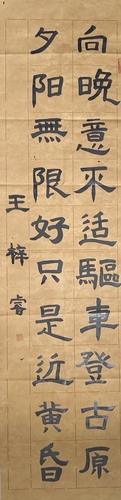 向晚意不適驅車登古原
夕阳無限好只是近黄昏
王梓睿